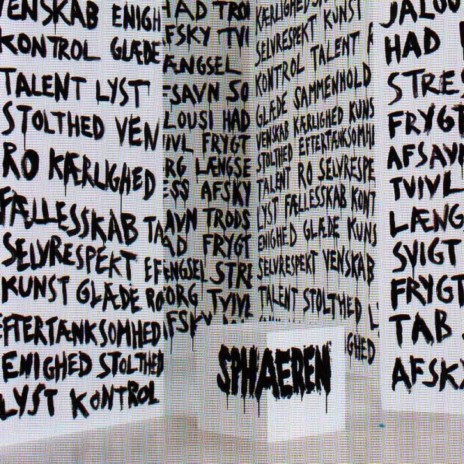 VENSKAB ENIGH
KONTROL GLÆDE
TALENT LYST
STOLTHED VEN
RO KÆRLIGHED
FÆLLESSKAB TA
SELVRESPEKT EF
KUNST GLÆDE RO
EFTERTÆNKSOMHED
ENIGHED STOLTHED
LYST KONTROL
HAD TROD
AFSKY TVI
ÆNGSEL
ESAVN SO
LOUSI HAD
VIVL FRYGT
RG LÆNGSE
ESS AFSKY
AVN TRODS
AD FRYGT
ENGSEL STRE
ORG TVIVL
AFSKY
KÆRLIGHEDS
SELVRESPEKT KUNST
KONTROL TALENT
GLÆDE SAMMENHOLD
VENSKAB KÆRLIGHED KUNS
STOLTHED EFTERTÆNKSOMH
TALENT RO SELVRESPE
LYST FÆLLESSKAB KONT
ENIGHED GLÆDE KUNS
SELVRESPEKT VENSKAB
TALENT STOLTHED L
IGHED
JALOU
HAD
STRES
FRYGT
AFSAV
TVIVL
LÆNG
SVIGT
FRYGT
TAB
AFSKY
SPHAEREN